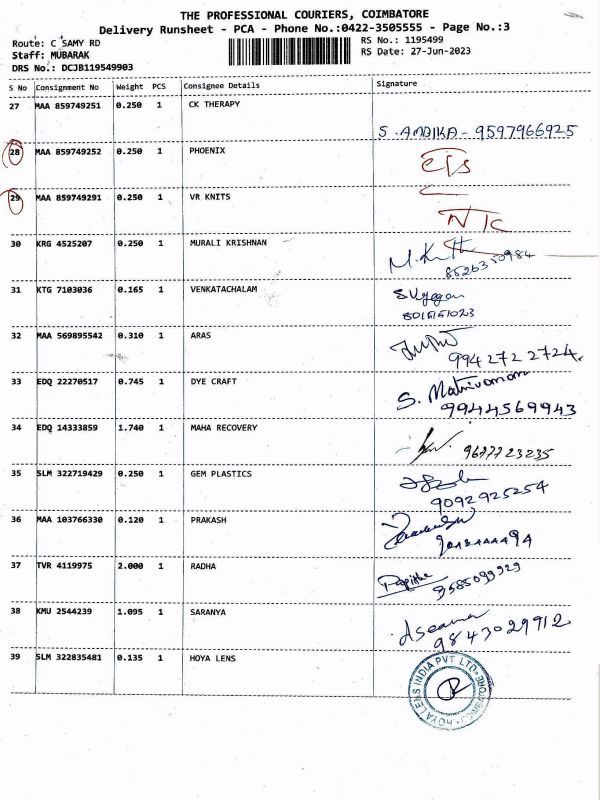 THE PROFESSIONAL COURIERS, COIMBATORE
Delivery Runsheet - PCA - Phone No.:0422-3505555 - Page No.:3
Route: C SAMY RD
RS No.: 1195499
Staff: MUBARAK
RS Date: 27-Jun-2023
DRS No.: DCJB119549903
S No Consignment No Weight PCS Consignee Details Signature
27 MAA 859749251 0.250 1 CK THERAPY
S. AMBIKA - 9597966925
28 MAA 859749252 0.250 1 PHOENIX
29 MAA 859749291 0.250 1 VR KNITS
30 KRG 4525207 0.250 1 MURALI KRISHNAN
8526350984
31 KTG 7103036 0.165 1 VENKATACHALAM
32 MAA 569895542 0.310 1 ARAS
9942722724.
33 EDQ 22270517 0.745 1 DYE CRAFT
S. Manivannan
9944569943
34 EDQ 14333859 1.740 1 MAHA RECOVERY
9677723235
35 SLM 322719429 0.250 1 GEM PLASTICS
9092925254
36 MAA 103766330 0.120 1 PRAKASH
37 TVR 4119975 2.000 1 RADHA
9585099929
38 KMU 2544239 1.095 1 SARANYA
9843029912
39 SLM 322835481 0.135 1 HOYA LENS
HOYA LENS INDIA PVT LTD COIMBATORE